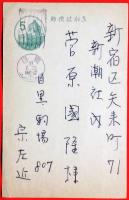 郵便はがき
新宿区矢来町71
新潮社内
菅原國隆様
目黒駒場807
宗左近